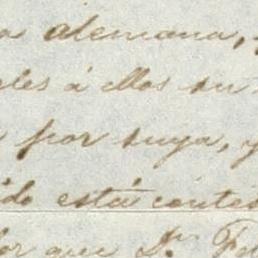 a alemana,
les á ellos su
por suya, y
do está conte
or que Dn Fe